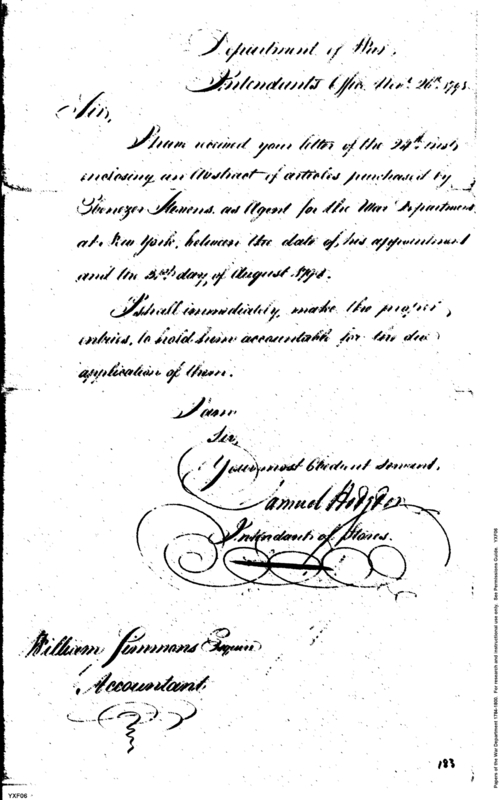 Department of War,
Intendant's Office Novr. 26th. 1798.
Sir,
I have received your letter of the 22th inst
enclosing an Abstract of articles purchased by
Ebenezer Stevens, as Agent for the War Department
at New York, between the date of, his appointment
and the 2nd day, of August 1798.
I shall immediately, make the proper
entries, to hold him accountable for the due
application of them.
I am
Sir,
Your most Obedient Servant,
Samuel Hodgdon
Intendant of Stores.
William Simmons Esquire
Accountant
183
YXF06
Papers of the War Department 1784-1800. For research and instructional use only. See Permissions Guide. YXF06